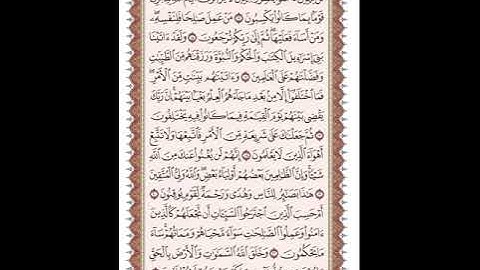 قَوْمًا بِمَا كَانُوا۟ يَكْسِبُونَ ۝ مَنْ عَمِلَ صَٰلِحًا فَلِنَفْسِهِۦ
وَمَنْ أَسَآءَ فَعَلَيْهَا ثُمَّ إِلَىٰ رَبِّكُمْ تُرْجَعُونَ ۝ وَلَقَدْ ءَاتَيْنَا
بَنِىٓ إِسْرَٰٓءِيلَ ٱلْكِتَٰبَ وَٱلْحُكْمَ وَٱلنُّبُوَّةَ وَرَزَقْنَٰهُم مِّنَ ٱلطَّيِّبَٰتِ
وَفَضَّلْنَٰهُمْ عَلَى ٱلْعَٰلَمِينَ ۝ وَءَاتَيْنَٰهُم بَيِّنَٰتٍ مِّنَ ٱلْأَمْرِ
فَمَا ٱخْتَلَفُوٓا۟ إِلَّا مِنۢ بَعْدِ مَا جَآءَهُمُ ٱلْعِلْمُ بَغْيًۢا بَيْنَهُمْ إِنَّ رَبَّكَ
يَقْضِى بَيْنَهُمْ يَوْمَ ٱلْقِيَٰمَةِ فِيمَا كَانُوا۟ فِيهِ يَخْتَلِفُونَ
۝ ثُمَّ جَعَلْنَٰكَ عَلَىٰ شَرِيعَةٍ مِّنَ ٱلْأَمْرِ فَٱتَّبِعْهَا وَلَا تَتَّبِعْ
أَهْوَآءَ ٱلَّذِينَ لَا يَعْلَمُونَ ۝ إِنَّهُمْ لَن يُغْنُوا۟ عَنكَ مِنَ ٱللَّهِ
شَيْـًٔا وَإِنَّ ٱلظَّٰلِمِينَ بَعْضُهُمْ أَوْلِيَآءُ بَعْضٍ وَٱللَّهُ وَلِىُّ ٱلْمُتَّقِينَ
۝ هَٰذَا بَصَٰٓئِرُ لِلنَّاسِ وَهُدًى وَرَحْمَةٌ لِّقَوْمٍ يُوقِنُونَ ۝
أَمْ حَسِبَ ٱلَّذِينَ ٱجْتَرَحُوا۟ ٱلسَّيِّـَٔاتِ أَن نَّجْعَلَهُمْ كَٱلَّذِينَ
ءَامَنُوا۟ وَعَمِلُوا۟ ٱلصَّٰلِحَٰتِ سَوَآءً مَّحْيَاهُمْ وَمَمَاتُهُمْ سَآءَ
مَا يَحْكُمُونَ ۝ وَخَلَقَ ٱللَّهُ ٱلسَّمَٰوَٰتِ وَٱلْأَرْضَ بِٱلْحَقِّ